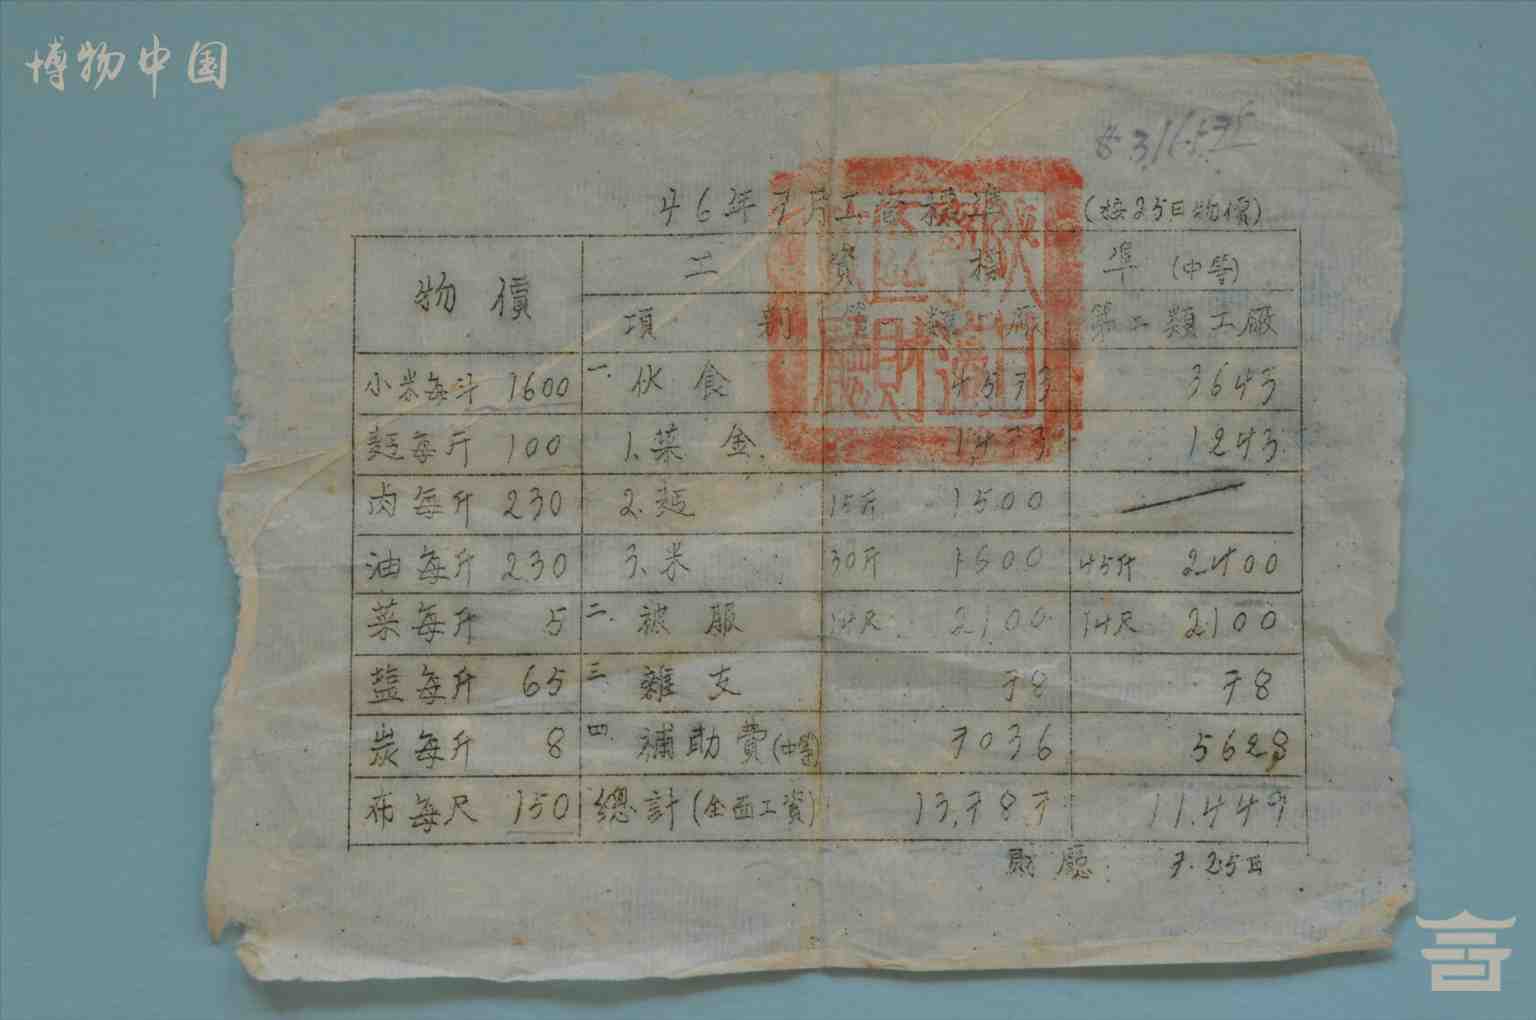 博物中国
46年7月工资标準 (按25日物價)
物價 工資標準 (中等)
項别 第一類工廠 第二類工廠
小米每斗 1600 一. 伙食 4573 3643
麵每斤 100 1.菜金. 1,473 1243
肉每斤 230 2.麵 15斤 1500
油每斤 230 3.米 30斤 1600 45斤 2400
菜每斤 5 二. 被服 14尺 2100 14尺 2100
盐每斤 65 三. 雜支 78 78
炭每斤 8 四. 補助費(中等) 7036 5628
布每尺 150 總計(全面工資) 13,787 11.449
財廳: 7.25日